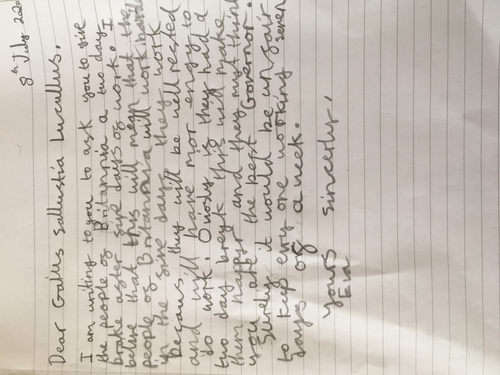 8th July 202
Dear Gallus Sallustia Lucullus.
I am writing to you to ask you to give
the people of Britannia a two day
brake after five days of work. I
beleve that this will mean that the
people of Britannia will work hard
the five days they work
becaus they will be well rested
and will have mor engy to
do work. if they had a
two day breyk this will make
them happy and they myt think
you are the best Governor.
Surely it would be unfair
to kep evry one working seven
days of a week.
Yours sincerely,
Eva